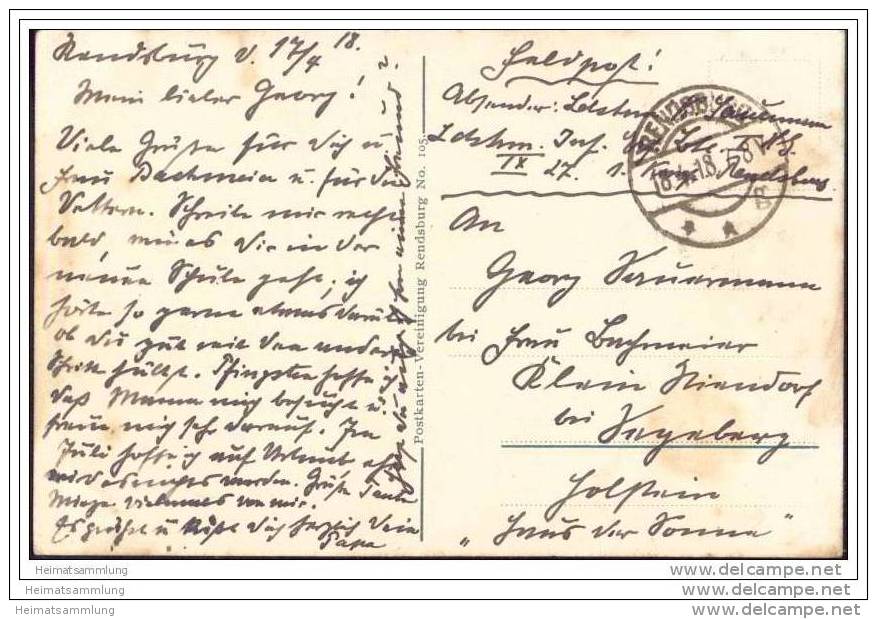 Rendsburg d. 17/4 18.
Mein lieber Georg!
Viele Grüße für Dich u.
Frau Bachmeier u. für die
Vettern. Schreibe mir recht
bald, wie es Dir in der
neuen Schule geht, ich
höre so gerne etwas darüber
ob Du gut mit den anderen
Schritt hältst. Pfingsten hoffe ich
daß Mama mich besucht u.
freue mich sehr darauf. Im
Juli hoffe ich auf Urlaub
wird es nichts werden. Grüße Tante
vielmals von mir.
Es grüßt u. küßt Dich herzlich Dein
Papa
Postkarten-Vereinigung Rendsburg No. 105.
Feldpost!
Absender: Ldstm. Sauermann
Ldstm. Inf.
IX 27. 1. Rendsburg
RENDSBURG
18.4.18.
An
Georg Sauermann
bei Frau Bachmeier
Klein Niendorf
bei
Segeberg
Holstein
„Haus der Sonne"
Heimatsammlung
Heimatsammlung
www.delcampe.net
www.delcampe.net